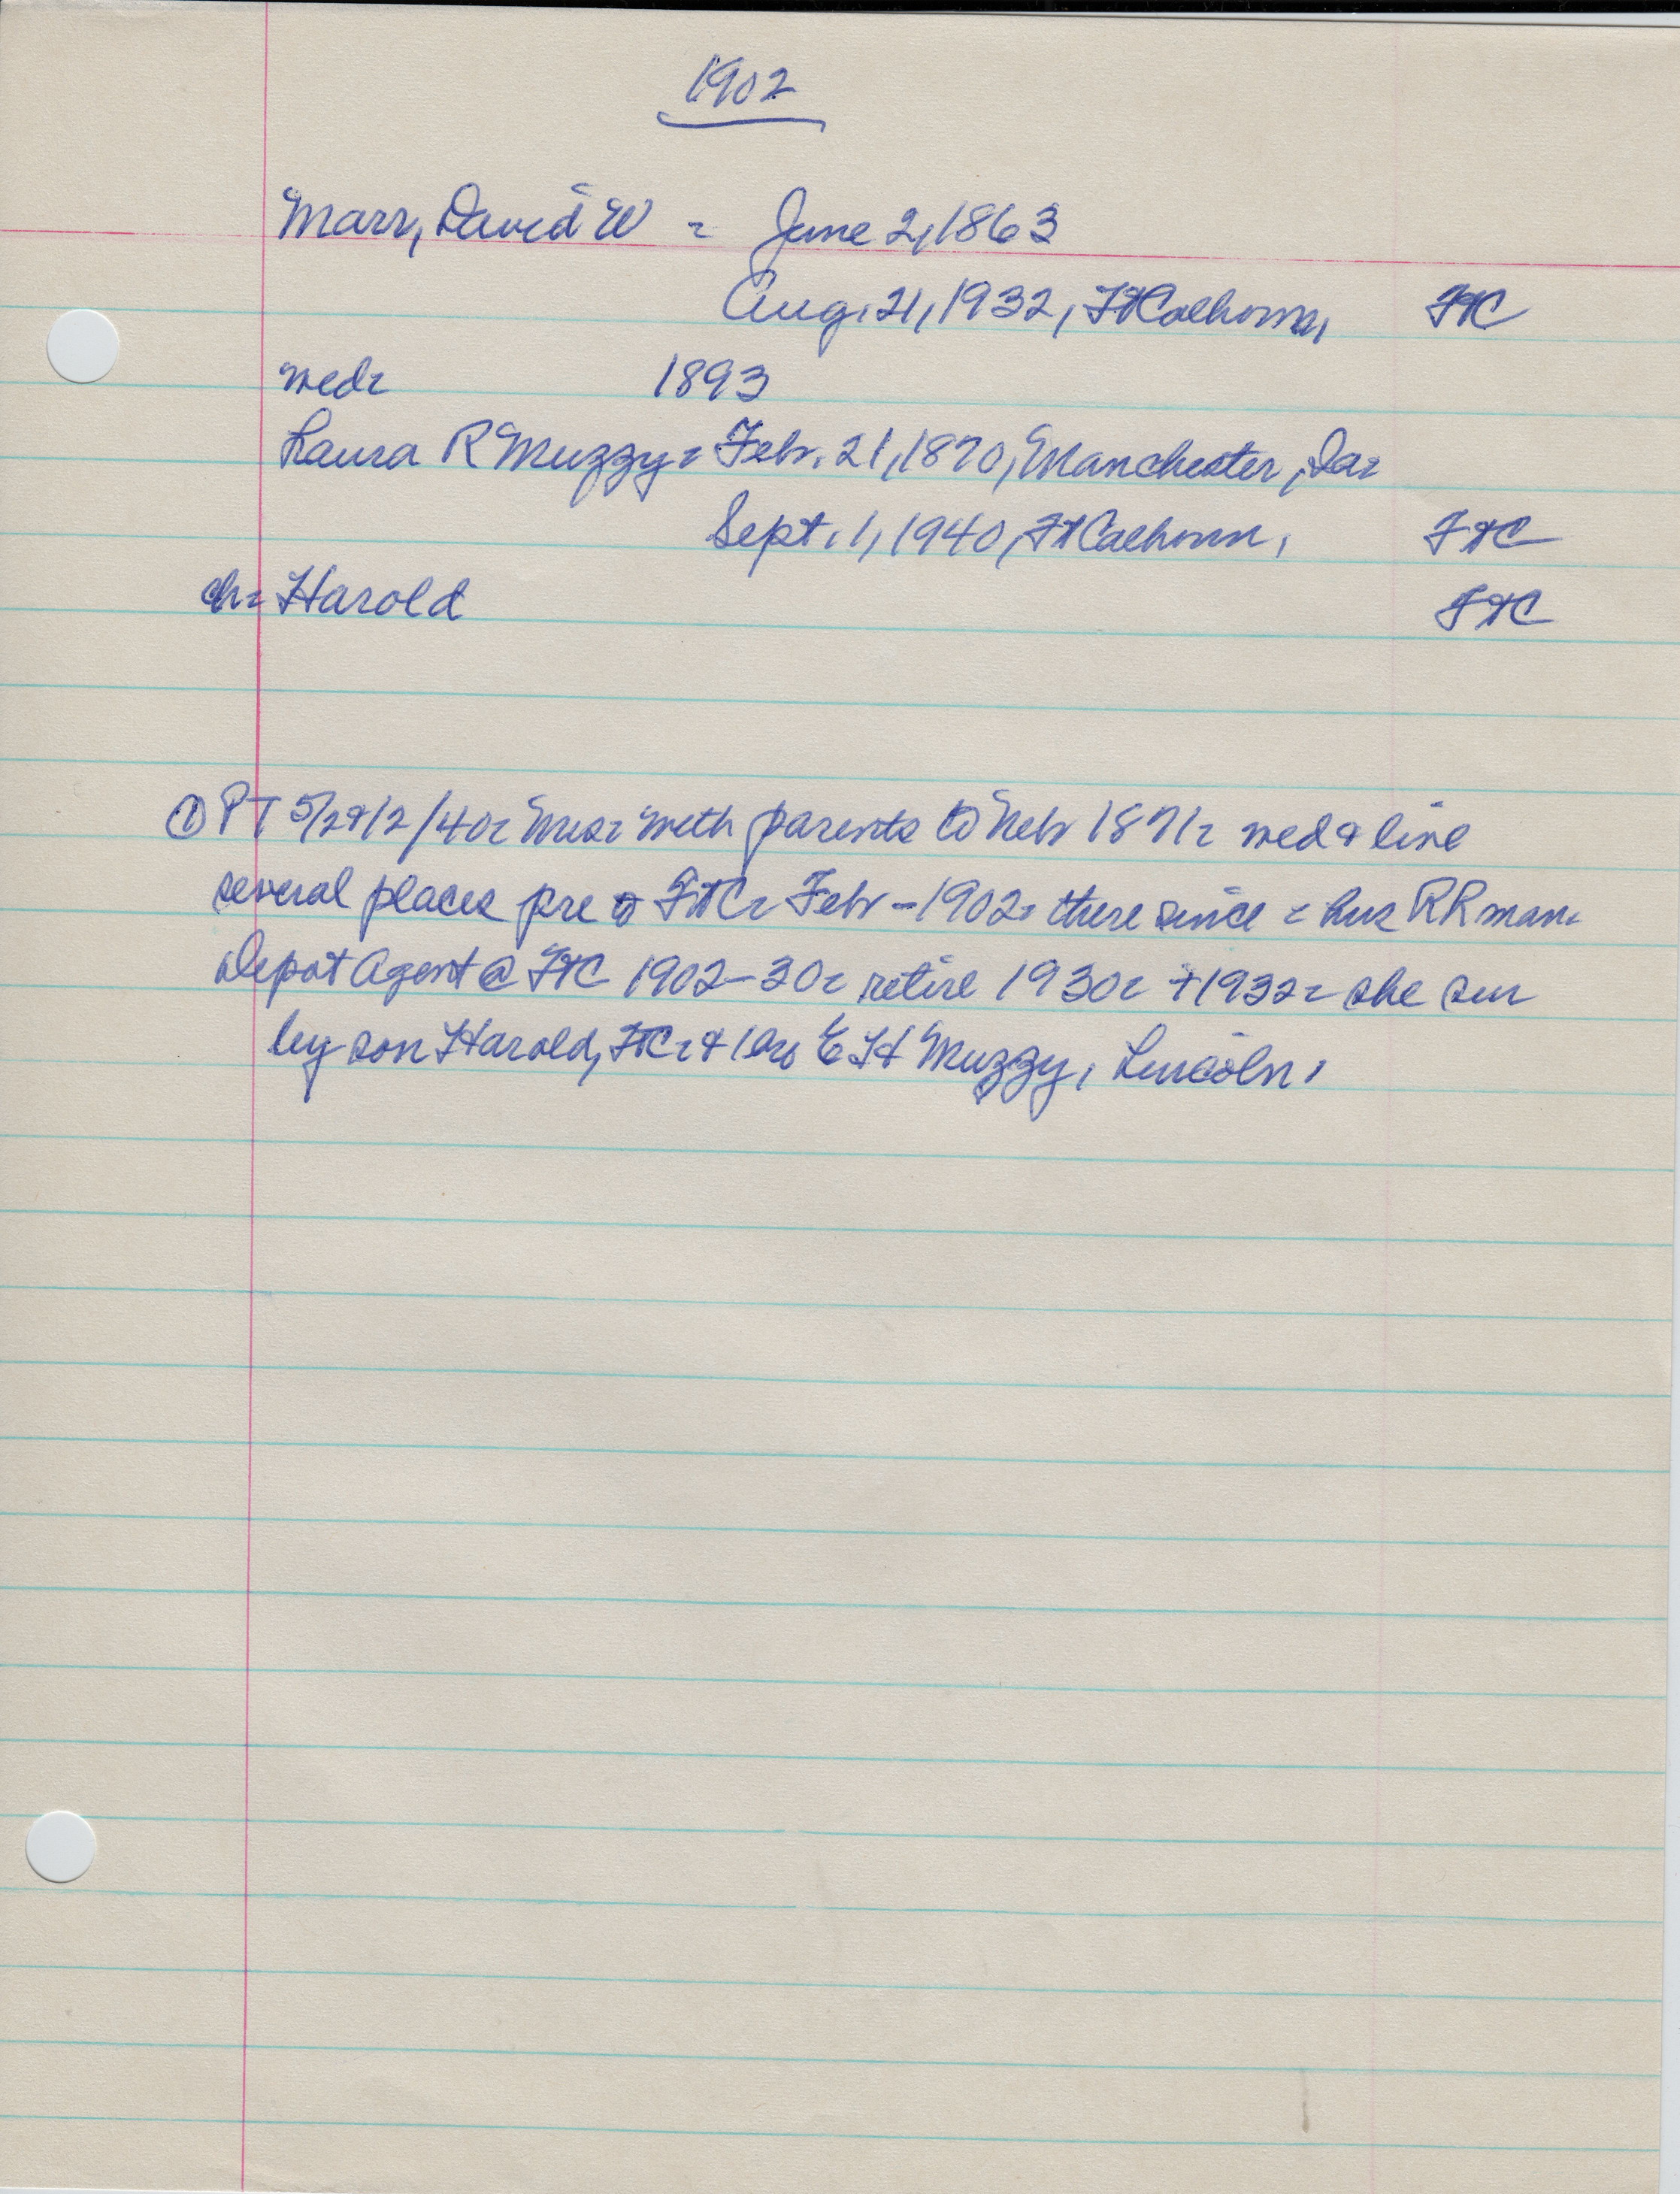 1902
Marr, David W = June 2, 1863
Aug. 21, 1932, FtCalhoun, FtC
wed= 1893
Laura R Muzzy= Feb. 21, 1870, Manchester, Ia=
Sept. 1, 1940, FtCalhoun, FtC
ch= Harold FtC
① PT 9/2/40= with parents to Neb 1871= wed & live
several places pre to FtC= Feb - 1902= there since = hus RR man=
Depot Agent @ FtC 1902-30= retire 1930= +1932= she sur
by son Harold, FtC= & 1 bro E H Muzzy, Lincoln,